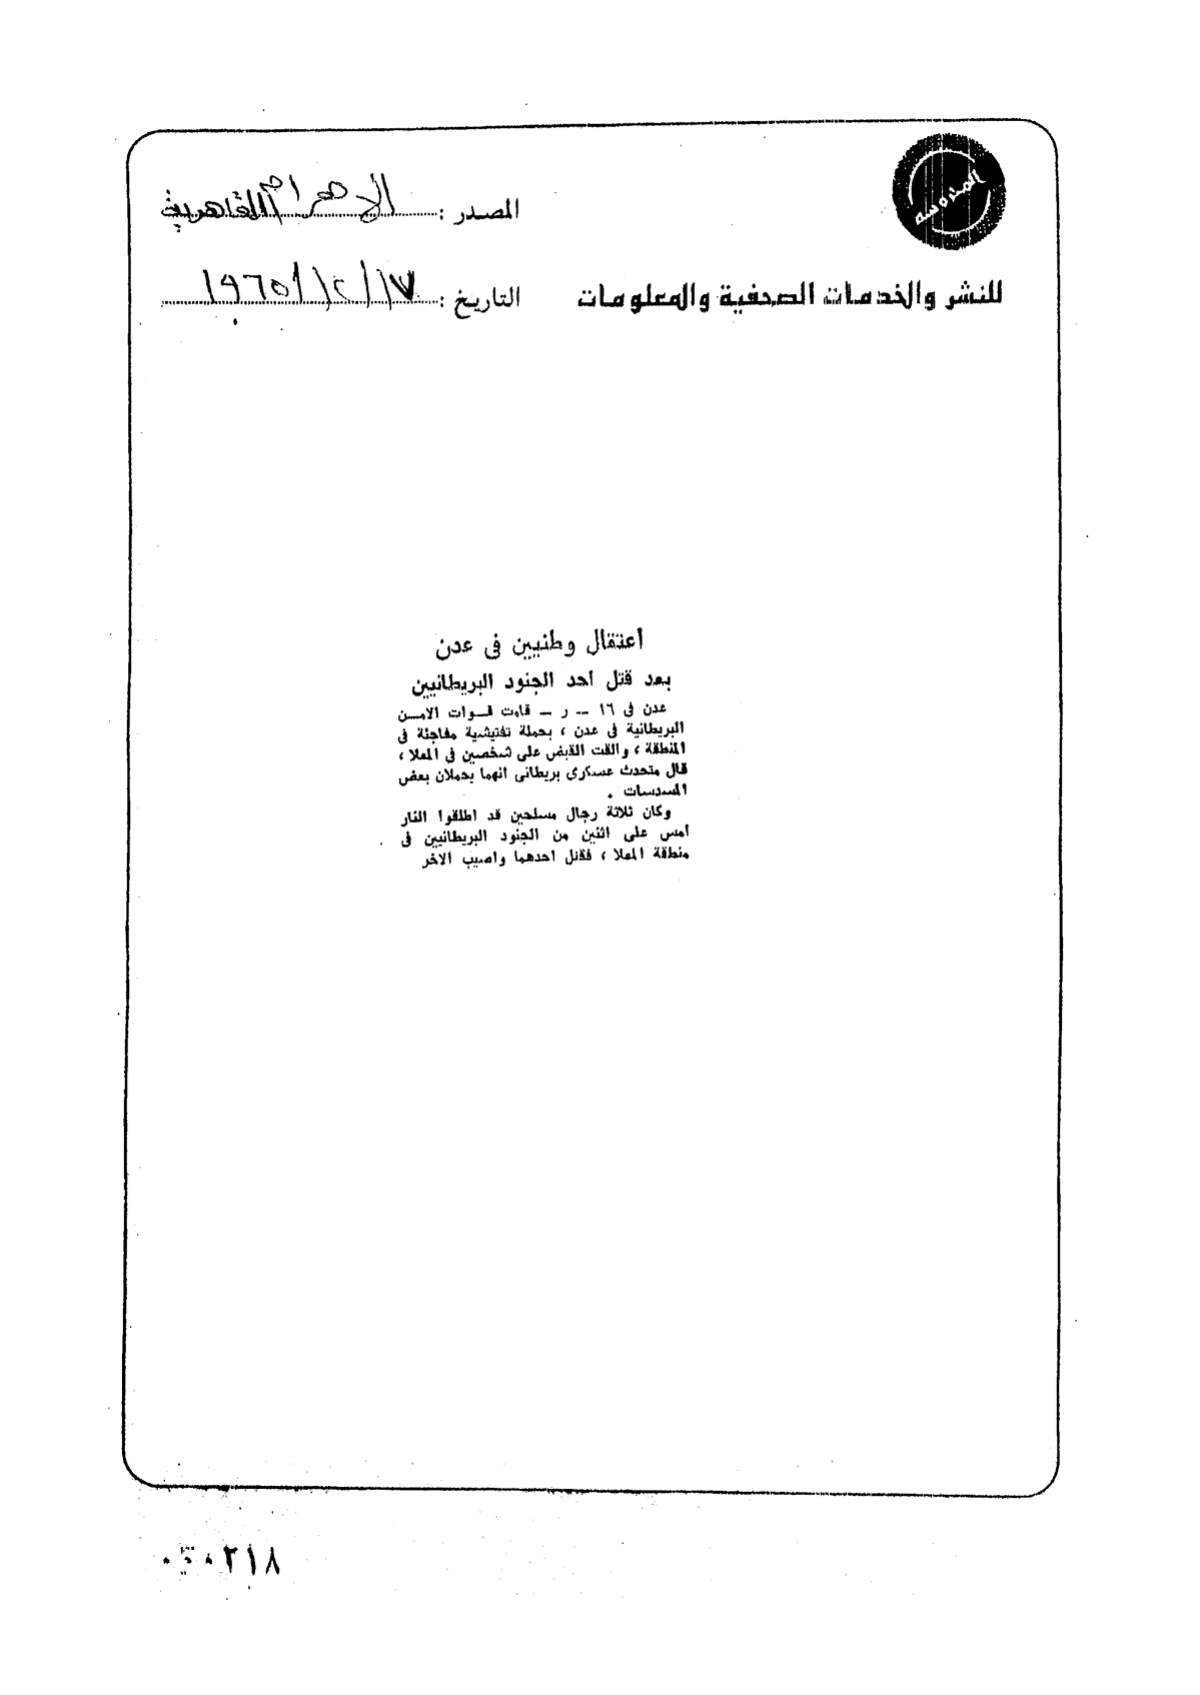 المحروسة
المصدر : الاهرام القاهرية
للنشر والخدمات الصحفية والمعلومات
التاريخ : ١٧/٢/١٩٦٥
اعتقال وطنيين فى عدن
بعد قتل احد الجنود البريطانيين
عدن فى ١٦ - ر - قامت قوات الامن
البريطانية فى عدن ، بحملة تفتيشية مفاجئة فى
المنطقة ، والقت القبض على شخصين فى المعلا ،
قال متحدث عسكرى بريطانى انهما يحملان بعض
المسدسات .
وكان ثلاثة رجال مسلحين قد اطلقوا النار
امس على اثنين من الجنود البريطانيين فى
منطقة المعلا ، فقتل احدهما واصيب الاخر
٢١٨